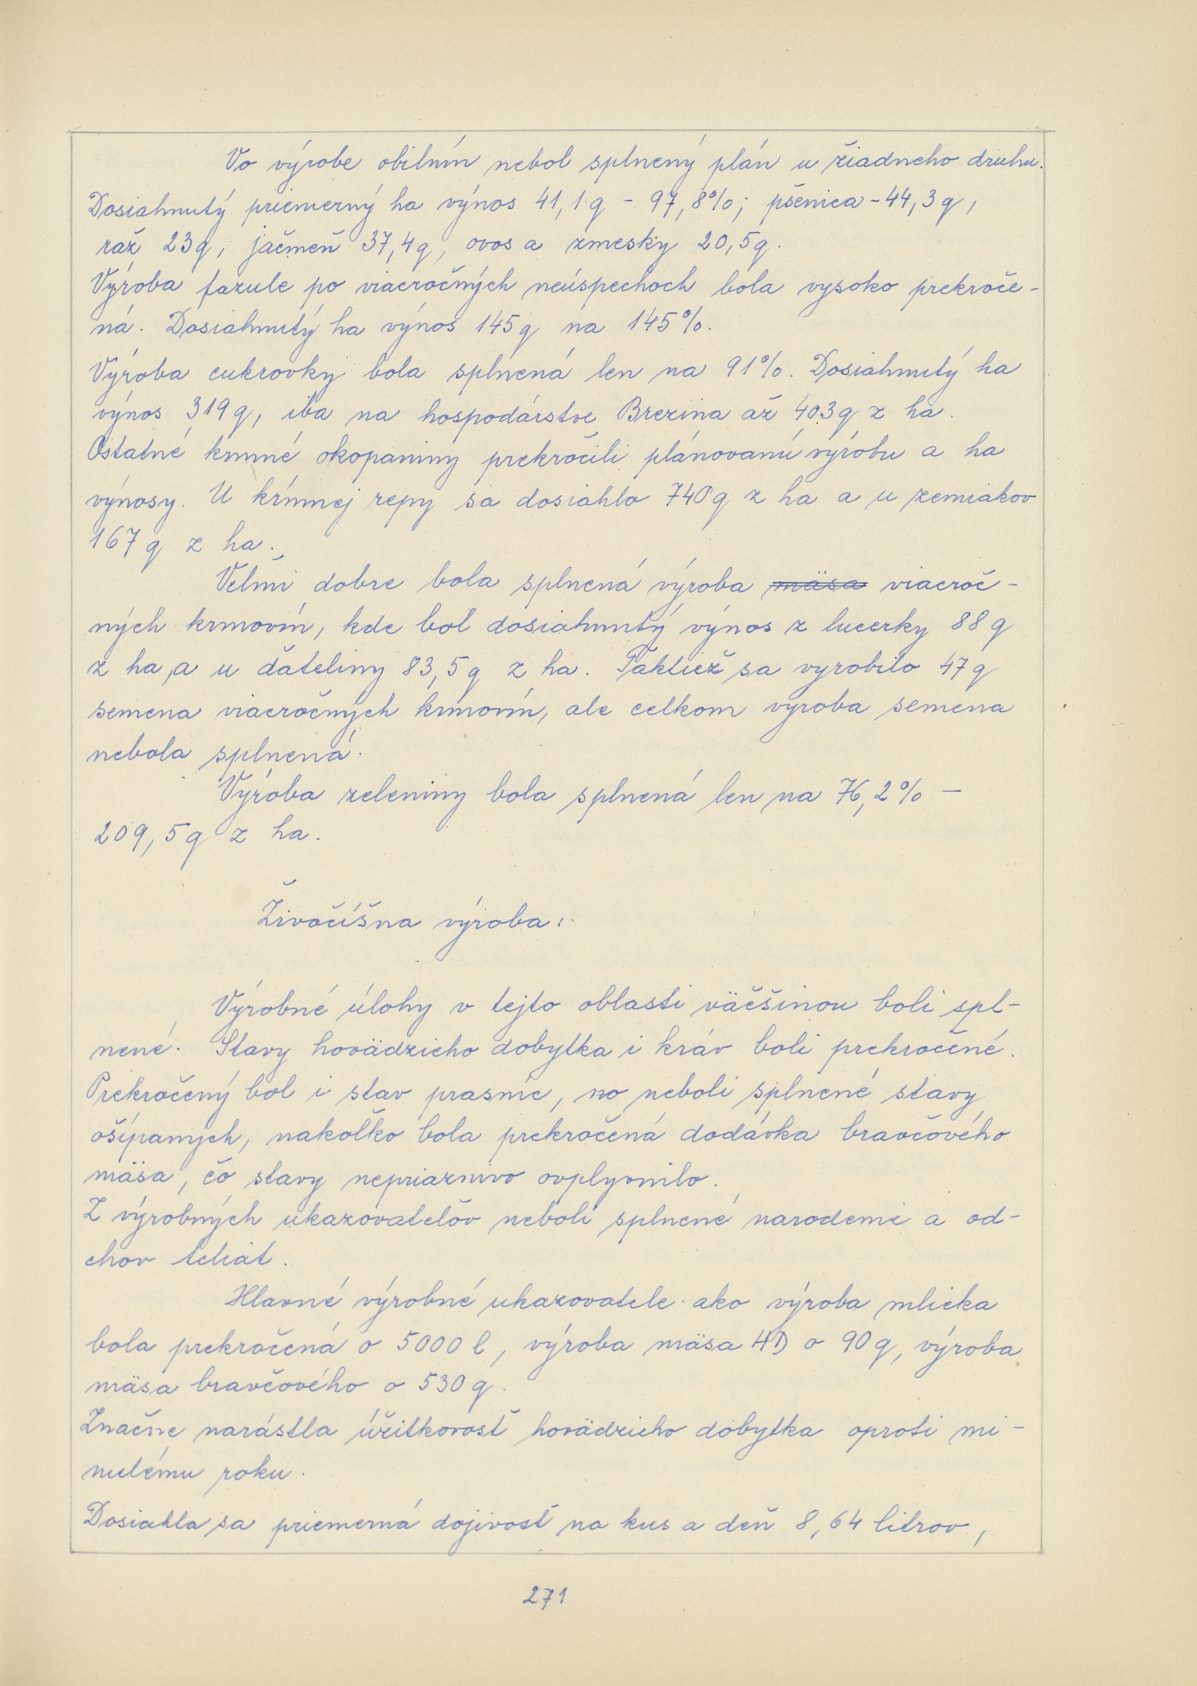 Vo výrobe obilnín nebol splnený plán u žiadneho druhu.
Dosiahnutý priemerný ha výnos 41,1 q – 97,8%; pšenica – 44,3 q,
raž 23 q, jačmeň 37,4 q, ovos a zmesky 20,5 q.
Výroba fazule po viacročných neúspechoch bola vysoko prekroče-
ná. Dosiahnutý ha výnos 145 q na 145%.
Výroba cukrovky bola splnená len na 91%. Dosiahnutý ha
výnos 319 q, iba na hospodárstve Brezina až 403 q z ha.
Ostatné kŕmné okopaniny prekročili plánovanú výrobu a ha
výnosy. U kŕmnej repy sa dosiahlo 740 q z ha a u zemiakov
167 q z ha.
Veľmi dobre bola splnená výroba mäsa viacroč-
ných krmovín, kde bol dosiahnutý výnos z lucerky 88 q
z ha, a u ďateliny 83,5 q z ha. Taktiež sa vyrobilo 47 q
semena viacročných krmovín, ale celkom výroba semena
nebola splnená.
Výroba zeleniny bola splnená len na 76,2% –
209,5 q z ha.
Živočíšna výroba:
Výrobné úlohy v tejto oblasti väčšinou boli spl-
nené. Stavy hovädzieho dobytka i kráv boli prekročené.
Prekročený bol i stav prasníc, no neboli splnené stavy
ošípaných, nakoľko bola prekročená dodávka bravčového
mäsa, čo stavy nepriaznivo ovplyvnilo.
Z výrobných ukazovateľov neboli splnené narodenie a od-
chov teliat.
Hlavné výrobné ukazovatele ako výroba mlieka
bola prekročená o 5000 l, výroba mäsa HD o 90 q, výroba
mäsa bravčového o 530 q.
Značne narástla úžitkovosť hovädzieho dobytka oproti mi-
nulému roku.
Dosiahla sa priemerná dojivosť na kus a deň 8,64 litrov,
271